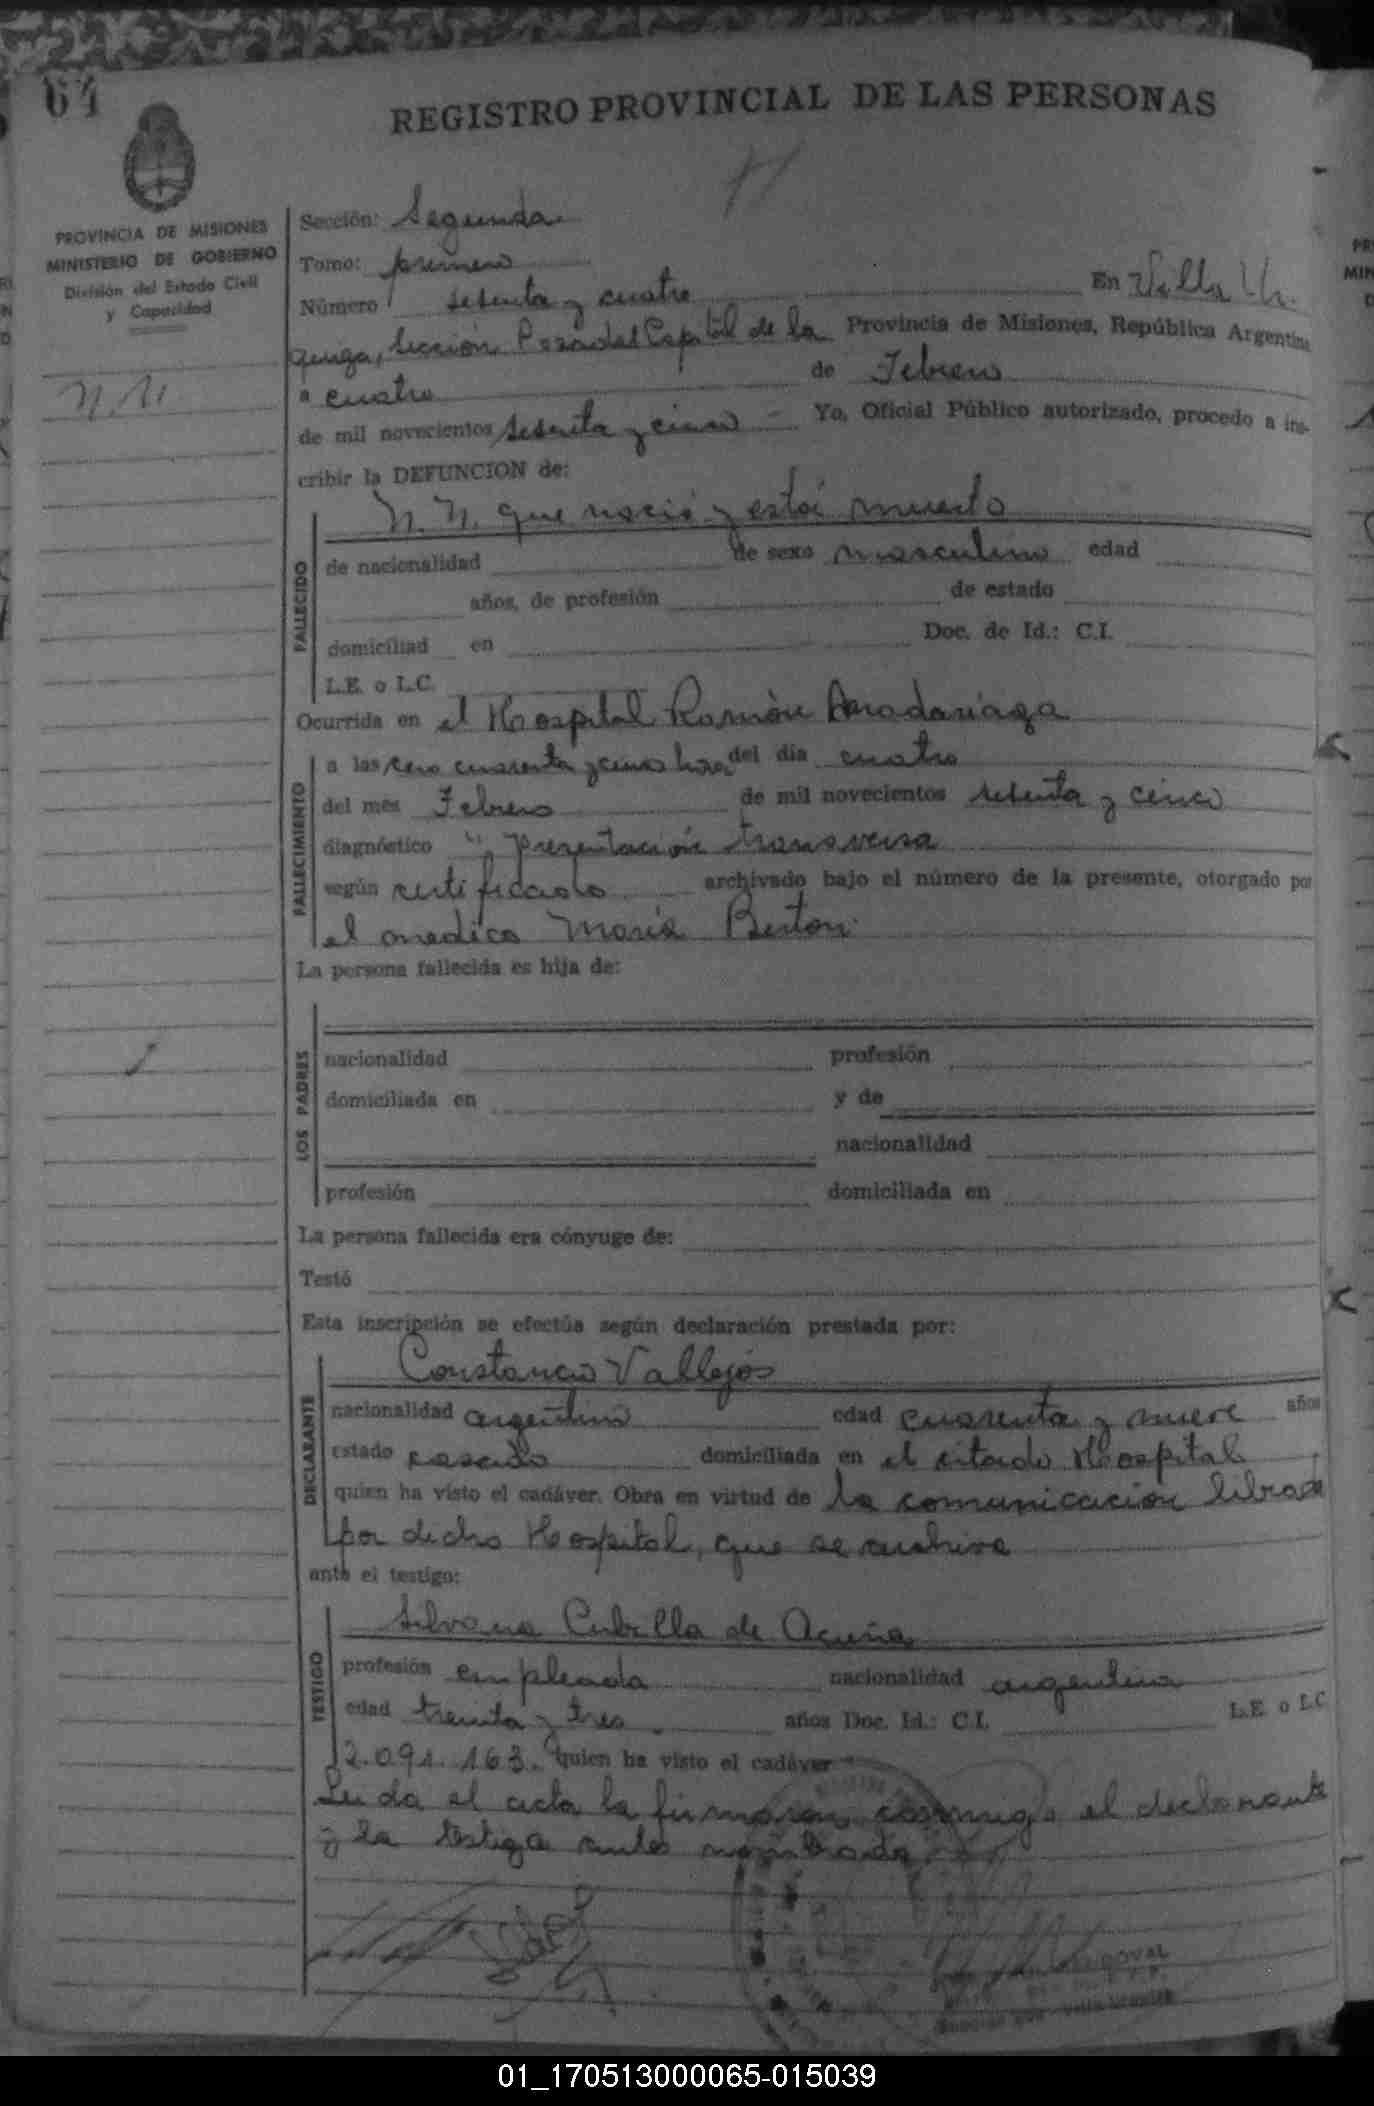 64
REGISTRO PROVINCIAL DE LAS PERSONAS
PROVINCIA DE MISIONES
MINISTERIO DE GOBIERNO
División del Estado Civil
y Capacidad
N. N.
Sección: Segunda
Tomo: primero
Número setenta y cuatro En Villa Ur-
quiza, Sección Posadas Capital de la Provincia de Misiones, República Argentina
a cuatro de Febrero
de mil novecientos setenta y cinco - Yo, Oficial Público autorizado, procedo a ins-
cribir la DEFUNCION de:
N. N. que nació y está muerto
FALLECIDO
de nacionalidad de sexo masculino edad
años, de profesión de estado
domiciliad en Doc. de Id.: C.I.
L.E. o L.C.
Ocurrida en el Hospital Ramón Madariaga
FALLECIMIENTO
a las cero cuarenta y cinco hora del día cuatro
del mes Febrero de mil novecientos setenta y cinco
diagnóstico " presentación transversa
según certificado archivado bajo el número de la presente, otorgado por
el medico María Berton
La persona fallecida es hija de:
LOS PADRES
nacionalidad profesión
domiciliada en y de
nacionalidad
profesión domiciliada en
La persona fallecida era cónyuge de:
Testó
Esta inscripción se efectúa según declaración prestada por:
Constancio Vallejos
DECLARANTE
nacionalidad argentino edad cuarenta y nueve años
estado casado domiciliada en el citado Hospital
quien ha visto el cadáver. Obra en virtud de la comunicación librada
por dicho Hospital, que se archiva
ante el testigo:
Silvana Cubilla de Acuña
TESTIGO
profesión empleada nacionalidad argentina
edad treinta y tres años Doc. Id.: C.I. L.E. o L.C
2.091.163. quien ha visto el cadáver
Leida el acta la firmaron conmigo el declarante
y la testiga antes nombrada
DOVAL
01_170513000065-015039